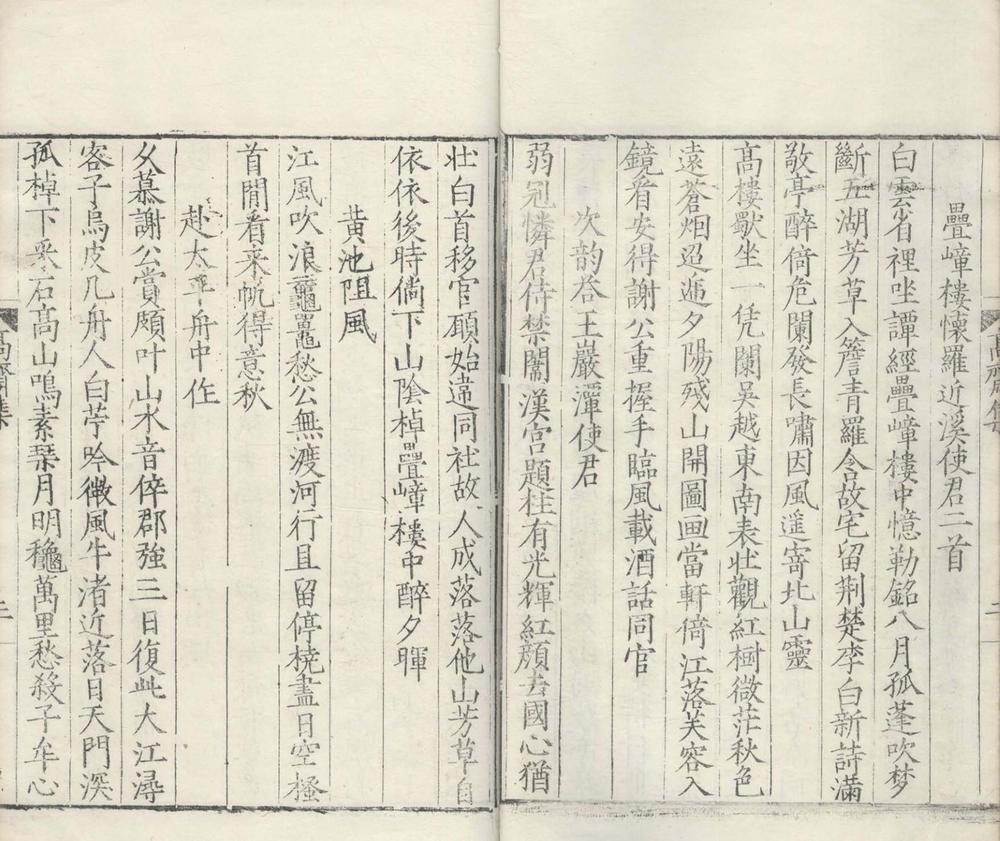 疊嶂樓懷羅近溪使君二首
白雲省裡坐譚經疊嶂樓中憶勒銘八月孤蓬吹梦
斷五湖芳草入簷青羅含故宅留荆楚李白新詩滿
敬亭醉倚危闌發長嘯因風遥寄北山靈
髙樓獸坐一凭闌吳越東南表壯觀紅樹微茫秋色
遠蒼烟迢逓夕陽殘山開圖畫當軒倚江落芙容入
鏡看安得謝公重握手臨風載酒話同官
次韵答王巖潭使君
弱冠憐君侍禁闈漢宫題柱有光輝紅顔去國心猶
壮白首移官願始違同社故人成落落他山芳草自
依依後時倘下山陰棹疊嶂樓中醉夕暉
黄池阻風
江風吹浪黿鼉愁公無渡河行且留停橈盡日空搔
首閒看来帆得意秋
赴太平舟中作
久慕謝公賞頗叶山水音倅郡強三日復此大江潯
客子烏皮几舟人白苧吟微風牛渚近落日天門深
孤棹下采石髙山鳴素琹月明龝萬里愁殺子牟心